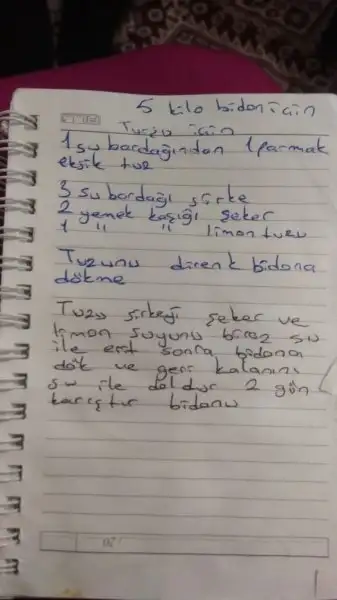 5 kilo bidon için
Turşu için
1 su bardağından 1 parmak
eksik tuz
3 su bardağı sirke
2 yemek kaşığı şeker
1 " " limon tuzu
Tuzunu direnk bidona
dökme
Tuzu sirkeği şeker ve
limon suyunu biraz su
ile erit sonra bidona
dök ve geri kalanını
su ile doldur 2 gün
karıştır bidonu